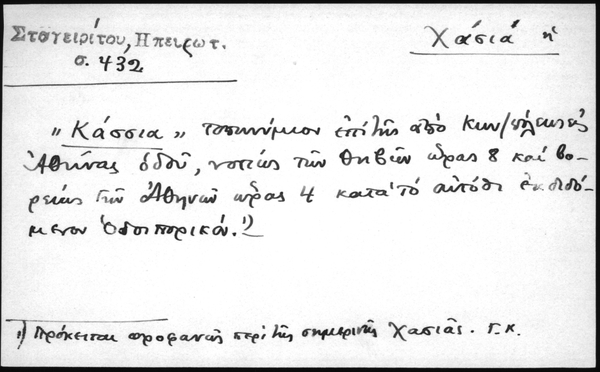 Σταγειρίτου, Ηπειρωτ.
σ. 432
Χάσιά ἡ
"Κάσσια" τοπωνύμιον ἐπὶ τῆς ἀπὸ Κων/πόλεως εἰς
Ἀθήνας ὁδοῦ, νοτίως τῶν Θηβῶν ὥρας 8 καὶ βο-
ρείως τῶν Ἀθηνῶν ὥρας 4 κατὰ τὸ αὐτόθι ἐκδιδό-
μενον Ὁδοιπορικόν. 1)
1) Πρόκειται προφανῶς περὶ τῆς σημερινῆς Χασιᾶς. Γ.Κ.